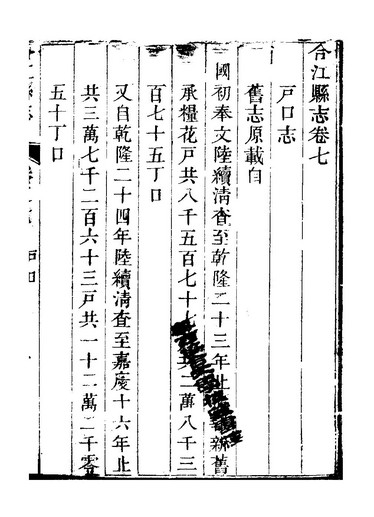 合江縣志卷七
戸口志
舊志原載自
國初奉文陸續清查至乾隆二十三年止新舊
承糧花戸共八千五百七十七共二萬八千三
百七十五丁口
又自乾隆二十四年陸續清查至嘉慶十六年止
共三萬七千二百六十三戸共一十二萬二千零
五十丁口